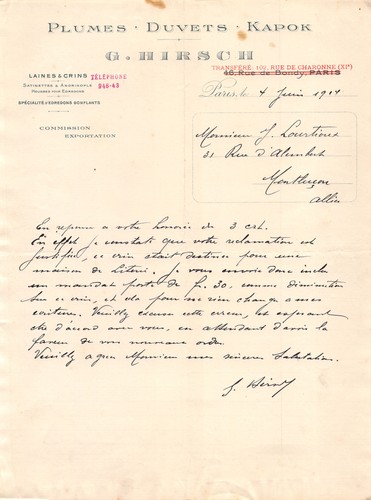 PLUMES · DUVETS · KAPOK
G. HIRSCH
LAINES & CRINS
TÉLÉPHONE
940-43
SATINETTES & ANDRINOPLE
HOUSSES POUR COMMERCE
SPÉCIALITÉ D'EDREDONS GONFLANTS
COMMISSION
EXPORTATION
TRANSFÉRÉ: 102, RUE DE CHARONNE (XIe)
46, Rue de Bondy, PARIS
Paris, le 4 Juin 1914
Monsieur J. Lourtioux
31 Rue d'Alembert
Montluçon
Allier
En reponse a votre honorée de 3 crt.
En effet je constate que votre reclamation est
justifié, ce crin était destiné pour une
maison de Literie. Je vous envoie donc inclu
un mandat poste de Fr. 30. comme diminution
sur ce crin, et cela pour ne rien changer a mes
ecriture. Veuillez excuser cette erreur, et esperant
d'acord avec vous, en attendant d'avoir la
faveur de vos nouveaux ordre.
Veuillez agreer Monsieur mes sinceres Salutation.
G. Hirsch